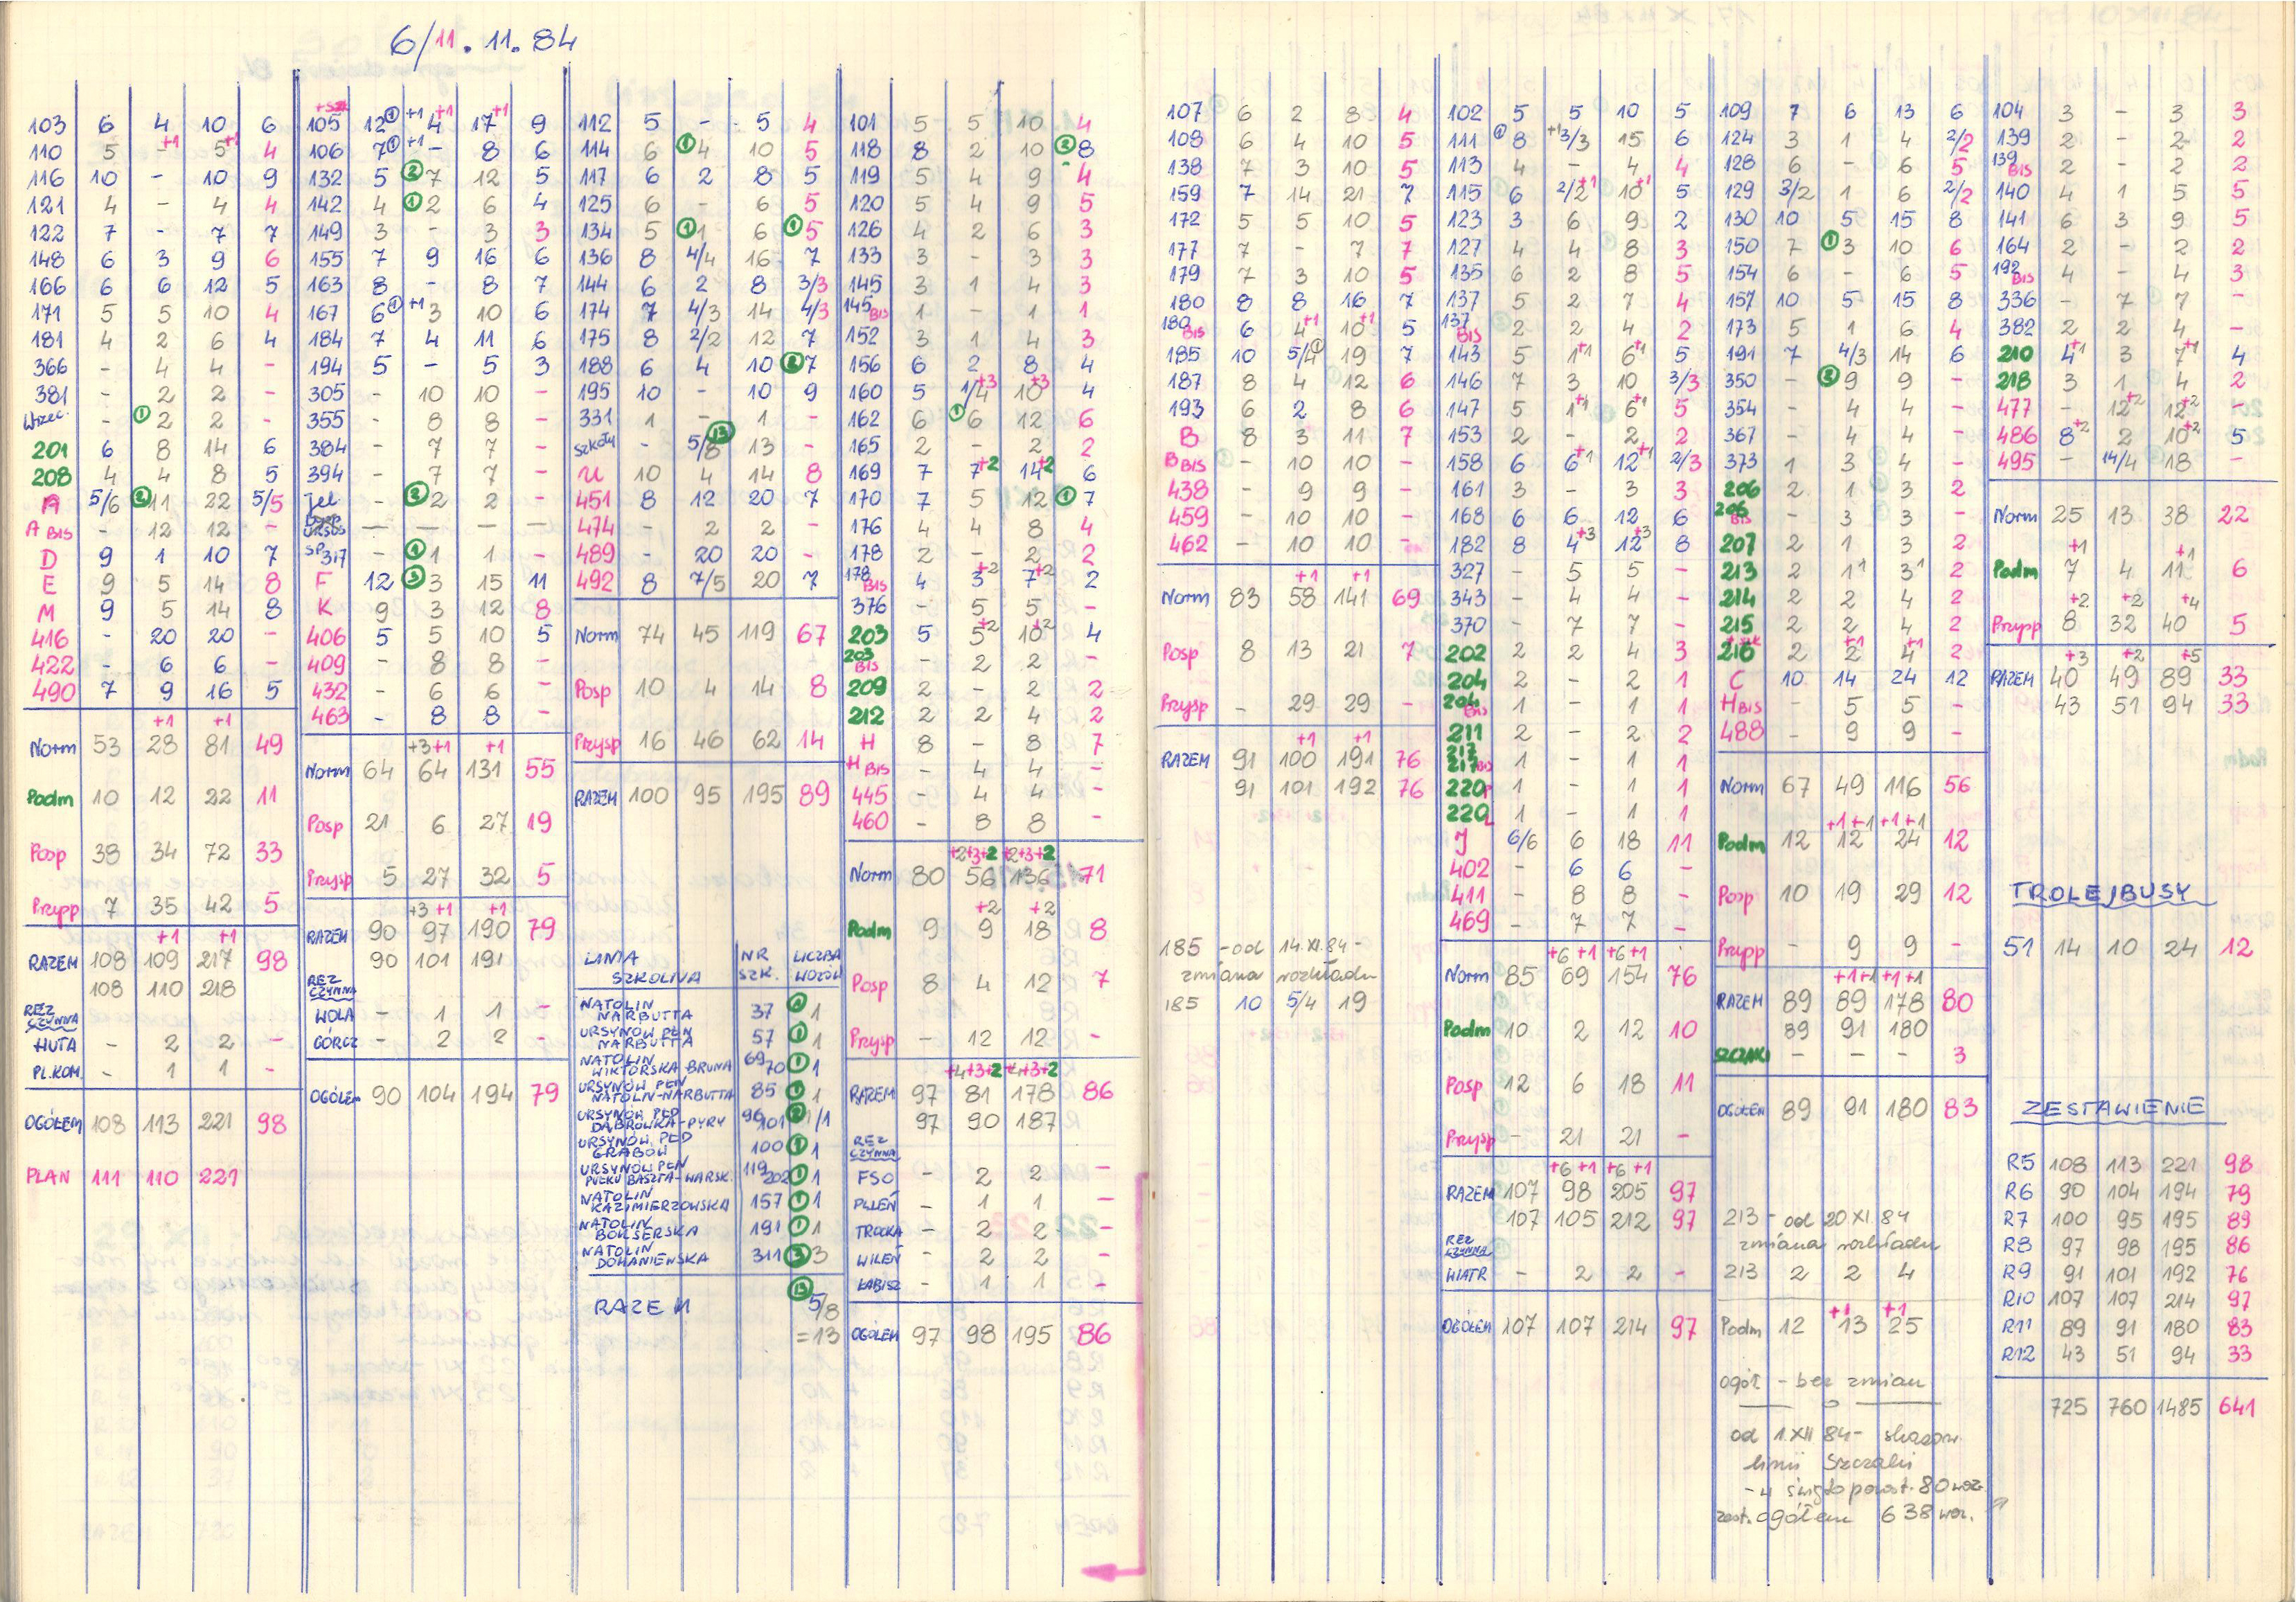 6/11.11.84
103 6 4 10 6
110 5 - +1 5 +1 4
116 10 - 10 9
121 4 - 4 4
122 7 - 7 7
148 6 3 9 6
166 6 6 12 5
171 5 5 10 4
181 4 2 6 4
366 - 4 4 -
381 - 2 2 -
Wrzec. - ① 2 2 -
201 6 8 14 6
208 4 4 8 5
A 5/6 ② 11 22 5/5
A BIS - 12 12 -
D 9 1 10 7
E 9 5 14 8
M 9 5 14 8
416 - 20 20 -
422 - 6 6 -
490 7 9 16 5
+1 +1
Norm 53 28 81 49
Podm 10 12 22 11
Posp 38 34 72 33
Przyp 7 35 42 5
+1 +1
RAZEM 108 109 217 98
108 110 218
REZ CZYNNA
HUTA - 2 2 -
PL.KOM. - 1 1 -
OGÓŁEM 108 113 221 98
PLAN 111 110 221
105 12 ① +1 4 +1 17 +1 9
106 7 ① +1 - 8 6
132 5 ② 7 12 5
142 4 ① 2 6 4
149 3 - 3 3
155 7 9 16 6
163 8 - 8 7
167 6 ① +1 3 10 6
184 7 4 11 6
194 5 - 5 3
305 - 10 10 -
355 - 8 8 -
384 - 7 7 -
394 - 7 7 -
Jel - ② 2 2 -
URSUS — — — —
SP 317 - ① 1 1 -
F 12 ③ 3 15 11
K 9 3 12 8
406 5 5 10 5
409 - 8 8 -
432 - 6 6 -
463 - 8 8 -
+3 +1 +1
Norm 64 64 131 55
Posp 21 6 27 19
Przysp 5 27 32 5
+3 +1 +1
RAZEM 90 97 190 79
90 101 191
REZ CZYNNA
WOLA - 1 1 -
GÓRCZ - 2 2 -
OGÓŁEM 90 104 194 79
112 5 - 5 4
114 6 ① 4 10 5
117 6 2 8 5
125 6 - 6 5
134 5 ① 1 6 ① 5
136 8 4/4 16 7
144 6 2 8 3/3
174 7 4/3 14 4/3
175 8 2/2 12 7
188 6 4 10 ② 7
195 10 - 10 9
331 1 - 1 -
szkoły - 5/8 ⑬ 13 -
U 10 4 14 8
451 8 12 20 7
474 - 2 2 -
489 - 20 20 -
492 8 7/5 20 7
Norm 74 45 119 67
Posp 10 4 14 8
Przysp 16 46 62 14
RAZEM 100 95 195 89
LINIA SZKOLNA NR SZK. LICZBA WOZÓW
NATOLIN NARBUTTA 37 ① 1
URSYNÓW PŁN NARBUTTA 57 ① 1
NATOLIN WIKTORSKA-BRUNA 69 70 ① 1
URSYNÓW PŁN NATOLIN-NARBUTTA 85 ① 1
URSYNÓW PŁD DĄBRÓWKA-PYRY 96 101 ② 1/1
URSYNÓW PŁD GRABÓW 100 ① 1
URSYNÓW PŁN PUŁKU BASZTA-WARSK. 119 202 ① 1
NATOLIN KAZIMIERZOWSKA 157 ① 1
NATOLIN BOKSERSKA 191 ① 1
NATOLIN DOMANIEWSKA 311 ③ 3
RAZEM ⑬ 5/8
=13
101 5 5 10 4
118 8 2 10 ② 8
119 5 4 9 4
120 5 4 9 5
126 4 2 6 3
133 3 - 3 3
145 3 1 4 3
145 BIS 1 - 1 1
152 3 1 4 3
156 6 2 8 4
160 5 1/4 +3 10 +3 4
162 6 ① 6 12 6
165 2 - 2 2
169 7 7 +2 14 +2 6
170 7 5 12 ① 7
176 4 4 8 4
178 2 - 2 2
178 BIS 4 3 +2 7 +2 2
376 - 5 5 -
203 5 5 +2 10 +2 4
203 BIS - 2 2 -
209 2 - 2 2
212 2 2 4 2
H 8 - 8 7
H BIS - 4 4 -
445 - 4 4 -
460 - 8 8 -
+2+3+2 +2+3+2
Norm 80 56 136 71
+2 +2
Podm 9 9 18 8
Posp 8 4 12 7
Przysp - 12 12 -
+4+3+2 +4+3+2
RAZEM 97 81 178 86
97 90 187
REZ CZYNNA
FSO - 2 2 -
PLLEŃ - 1 1 -
TROCKA - 2 2 -
WILEŃ - 2 2 -
ŁABISZ - 1 1 -
OGÓŁEM 97 98 195 86
107 6 2 8 4
108 6 4 10 5
138 7 3 10 5
159 7 14 21 7
172 5 5 10 5
177 7 - 7 7
179 7 3 10 5
180 8 8 16 7
180 BIS 6 4 +1 10 +1 5
185 10 5/4 ① 19 7
187 8 4 12 6
193 6 2 8 6
B 8 3 11 7
B BIS - 10 10 -
438 - 9 9 -
459 - 10 10 -
462 - 10 10 -
+1 +1
Norm 83 58 141 69
Posp 8 13 21 7
Przysp - 29 29 -
+1 +1
RAZEM 91 100 191 76
91 101 192 76
185 - od 14.XI.84 -
zmiana rozkładu
185 10 5/4 19
102 5 5 10 5
111 ① 8 +1 3/3 15 6
113 4 - 4 4
115 6 2/2 +1 10 +1 5
123 3 6 9 2
127 4 4 8 3
135 6 2 8 5
137 5 2 7 4
137 BIS 2 2 4 2
143 5 1 +1 6 +1 5
146 7 3 10 3/3
147 5 1 +1 6 +1 5
153 2 - 2 2
158 6 6 +1 12 +1 2/3
161 3 - 3 3
168 6 6 12 6
182 8 4 +3 12 +3 8
327 - 5 5 -
343 - 4 4 -
370 - 7 7 -
202 2 2 4 3
204 2 - 2 1
204 BIS 1 - 1 1
211 2 - 2 2
217 217 BIS 1 - 1 1
220P 1 - 1 1
220L 1 - 1 1
J 6/6 6 18 11
402 - 6 6 -
411 - 8 8 -
469 - 7 7 -
+6 +1 +6 +1
Norm 85 69 154 76
Podm 10 2 12 10
Posp 12 6 18 11
Przysp - 21 21 -
+6 +1 +6 +1
RAZEM 107 98 205 97
107 105 212 97
REZ CZYNNA
WIATR - 2 2 -
OGÓŁEM 107 107 214 97
109 7 6 13 6
124 3 1 4 2/2
128 6 - 6 5
129 3/2 1 6 2/2
130 10 5 15 8
150 7 ① 3 10 6
154 6 - 6 5
157 10 5 15 8
173 5 1 6 4
191 7 4/3 14 6
350 - 9 9 -
354 - 4 4 -
367 - 4 4 -
373 1 3 4 -
206 2 1 3 2
206 BIS - 3 3 -
207 2 1 3 2
213 2 1 1 3 1 2
214 2 2 4 2
215 2 2 4 2
216 2 2 +1 4 +1 2
C 10 14 24 12
H BIS - 5 5 -
488 - 9 9 -
Norm 67 49 116 56
+1+1 +1+1
Podm 12 12 24 12
Posp 10 19 29 12
Przyp - 9 9 -
+1+1 +1+1
RAZEM 89 89 178 80
89 91 180
SZCZAKI - - - 3
OGÓŁEM 89 91 180 83
213 - od 20 XI 84
zmiana rozkładu
213 2 2 4
Podm 12 +1 13 +1 25
ogół - bez zmian
od 1.XII 84 - skasow.
linii Szczaki
zest. ogółem 638 woz.
104 3 - 3 3
139 2 - 2 2
139 BIS 2 - 2 2
140 4 1 5 5
141 6 3 9 5
164 2 - 2 2
192 BIS 4 - 4 3
336 - 7 7 -
382 2 2 4 -
210 4 +1 3 7 +1 4
218 3 1 4 2
477 - 12 +2 12 +2 -
486 8 +2 2 10 +2 5
495 - 14/4 18 -
Norm 25 13 38 22
+1 +1
Podm 7 4 11 6
+2 +2 +4
Przysp 8 32 40 5
+3 +2 +5
RAZEM 40 49 89 33
43 51 94 33
TROLEJBUSY
51 14 10 24 12
ZESTAWIENIE
R5 108 113 221 98
R6 90 104 194 79
R7 100 95 195 89
R8 97 98 195 86
R9 91 101 192 76
R10 107 107 214 97
R11 89 91 180 83
R12 43 51 94 33
725 760 1485 641